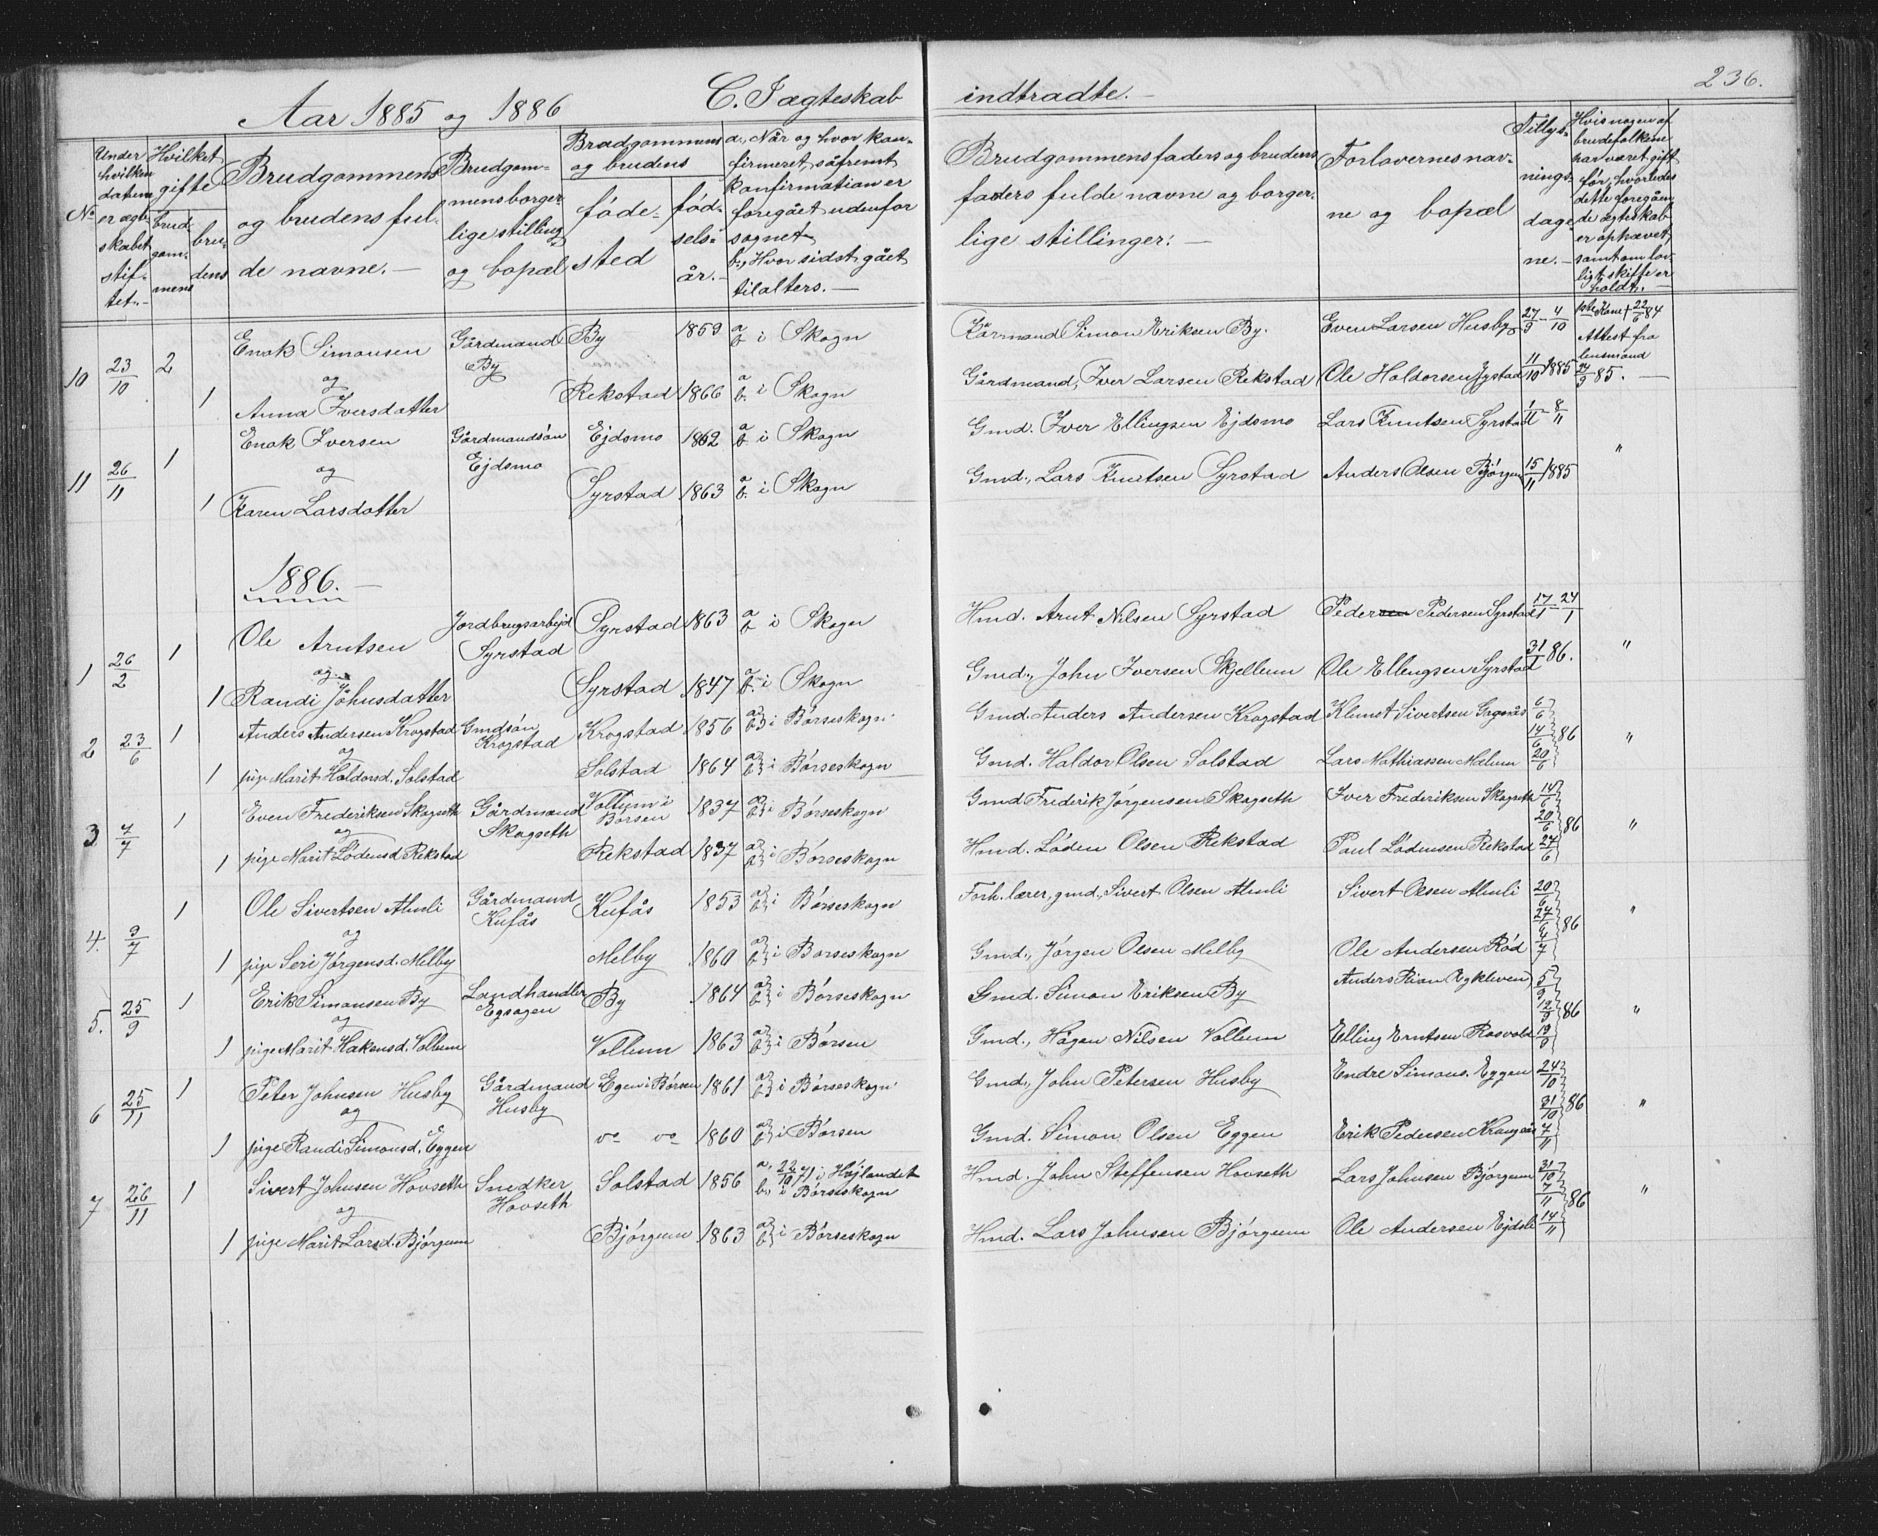 236.
Aar 1885 og 1886 C. I ægteskab indtrådte.
No
Under hvilken datum er ægteskabet stiftet.
Hvilket gifte
brudgommens
brudens
Brudgommens og brudens fulde navne.
Brudgommens borgerlige stilling og bopæl
Brudgommens og brudens
fødested
fødselsår.
a, Når og hvor konfirmeret, såfremt konfirmation er foregået udenfor sognet
b, Hvor sidst gået til alters.
Brudgommens faders og brudens faders fulde navne og borgerlige stillinger.
Forlovernes navne og bopæl
Tillysningsdagene.
Hvis nogen af brudefolkene har været gift før, hvorledes dette foregående ægteskab er ophævet, samt om lovligt skifte er holdt.
10 23/10 2 Enok Simonsen Gårdmand By By 1859 a b i Skogn Kårmand Simon Eriksen By. Even Larsen Husby 27/9 - 4/10 1ste Kone † 22/6 84
og
1 Anna Iversdatter Rekstad 1866 a b. i Skogn Gårdmand, Iver Larsen Rekstad Ole Haldorsen 11/10 1885 Attest fra lensmand 85.
11 26/11 1 Enok Iversen Gårdmandsøn Ejdsmo Ejdsmo 1862 a b i Skogn Gmd. Iver Ellingsen Ejdsmo Lars Knutsen Syrstad 1/11 - 8/11
og
1 Karen Larsdatter Syrstad 1863 a b. i Skogn Gmd., Lars Knutsen Syrstad Anders Olsen Bjørgum 15/11 1885 "
1886.
1 26/2 1 Ole Arntsen Jordbrugsarbejd Syrstad Syrstad 1863 a b i Skogn Hmd. Arnt Nilsen Syrstad Pedersen Pedersen Syrstad 17/1 - 24/1
og
1 Randi Johnsdatter Syrstad 1847 a b. i Skogn Gmd., John Iversen Skjellum Ole Ellengsen Syrstad 31/1 86. "
2 23/6 1 Anders Andersen Krogstad Gmdsøn Krogstad Krogstad 1856 a b i Børseskogn Gmd. Anders Andersen Krogstad Klemet Sivertsen 6/6
og
1 pige Marit Haldorsd. Solstad Solstad 1864 a b i Børseskogn Gmd. Haldor Olsen Solstad Lars Mathiassen Mælum 14/6 20/6 86 "
3 7/7 1 Even Frederiksen Skogseth Gårdmand Skogseth Vollum i Børsen 1837 a b i Børseskogn Gmd Frederik Jørgensen Skogseth Iver Frederiksen Skogseth 14/6
og
1 pige Marit Lødensd. Rekstad Rekstad 1837 a b i Børseskogn Hmd. Løden Olsen Rekstad Paul Lødensen Rekstad 20/6 27/6 86 "
4. 9/7 1 Ole Sivertsen Almli Gårdmand Kufås Kufås 1853 a b i Børseskogn Forh. lærer, gmd., Sivert Olsen Almli Sivert Olsen Almli 20/6
og
1 pige Seri Jørgensd. Melby Melby 1860 a b i Børseskogn Gmd., Jørgen Olsen Melby Ole Andersen Rød 27/6 4/7 86 "
5. 25/9 1 Erik Simonsen By Landhandler Egsagen By 1864 a b i Børseskogn Gmd. Simon Eriksen By Anders 5/9
og
1 pige Marit Hakensd. Vollum Vollum 1863 a b i Børsen Gmd., Hågen Nilsen Vollum Elling Erntsen Rosvold 12/9 19/9 86 "
6 25/11 1 Peter Johnsen Husby Gårdmand Husby Egen i Børsen 1861 a b i Børseskogn Gmd., John Petersen Husby Endre Simons. Eggen 24/10
og
1 pige Randi Simonsd. Eggen do do 1860 a b i Børsen Gmd. Simon Olsen Eggen Erik Pedersen 31/10 7/11 86 "
7 26/11 1 Sivert Johnsen Hovseth Snedker Hovseth Solstad 1856 a, 22/10 71 i Højlandet b., i Børseskogn Hmd. John Steffensen Hovseth Lars Johnsen Bjørgum 31/10
og
1 pige Marit Larsd. Bjørgum Bjørgum 1863 a b i Børseskogn Hmd. Lars Johnsen Bjørgum Ole Andersen Ejdsli 7/11 14/11 86 "